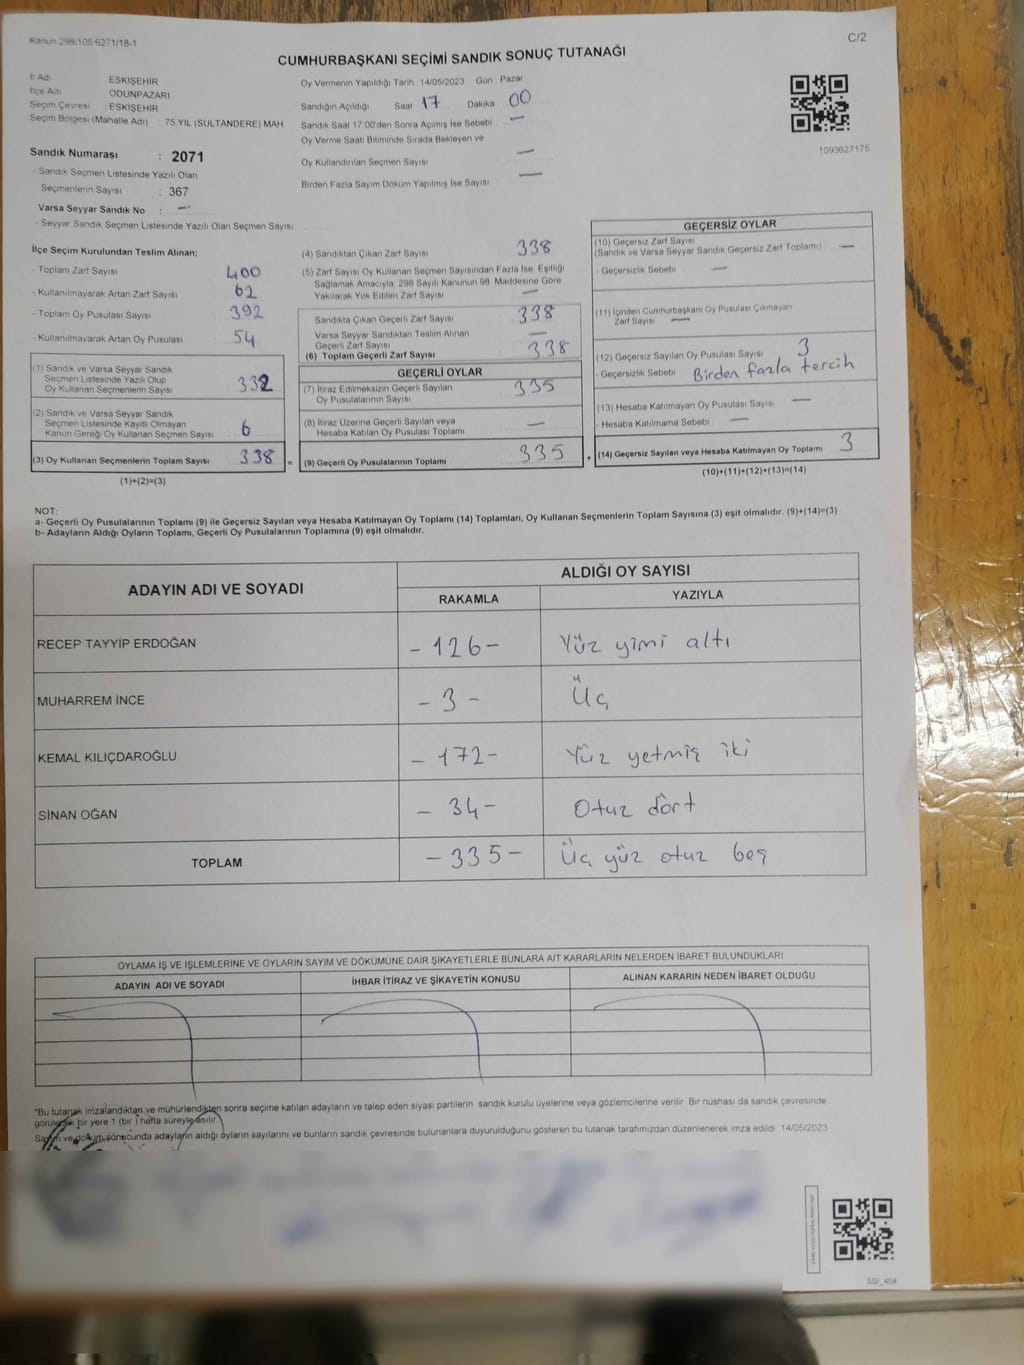 Kanun 298/105 6271/18-1
C/2
CUMHURBAŞKANI SEÇİMİ SANDIK SONUÇ TUTANAĞI
İl Adı ESKİŞEHİR
İlçe Adı ODUNPAZARI
Seçim Çevresi : ESKİŞEHİR
Seçim Bölgesi (Mahalle Adı) : 75.YIL (SULTANDERE) MAH.
Sandık Numarası : 2071
- Sandık Seçmen Listesinde Yazılı Olan
Seçmenlerin Sayısı : 367
Varsa Seyyar Sandık No : —
- Seyyar Sandık Seçmen Listesinde Yazılı Olan Seçmen Sayısı
Oy Vermenin Yapıldığı Tarih : 14/05/2023 Gün Pazar
Sandığın Açıldığı Saat 17 Dakika 00
Sandık Saat 17.00'den Sonra Açılmış İse Sebebi : —
Oy Verme Saati Bitiminde Sırada Bekleyen ve
Oy Kullandırılan Seçmen Sayısı —
Birden Fazla Sayım Döküm Yapılmış İse Sayısı —
1093627175
İlçe Seçim Kurulundan Teslim Alınan;
- Toplam Zarf Sayısı 400
- Kullanılmayarak Artan Zarf Sayısı 62
- Toplam Oy Pusulası Sayısı 392
- Kullanılmayarak Artan Oy Pusulası 54
(1) Sandık ve Varsa Seyyar Sandık
Seçmen Listesinde Yazılı Olup
Oy Kullanan Seçmenlerin Sayısı 332
(2) Sandık ve Varsa Seyyar Sandık
Seçmen Listesinde Kayıtlı Olmayan
Kanun Gereği Oy Kullanan Seçmen Sayısı 6
(3) Oy Kullanan Seçmenlerin Toplam Sayısı 338
(1)+(2)=(3)
(4) Sandıktan Çıkan Zarf Sayısı 338
(5) Zarf Sayısı Oy Kullanan Seçmen Sayısından Fazla İse, Eşitliği
Sağlamak Amacıyla, 298 Sayılı Kanunun 98. Maddesine Göre
Yakılarak Yok Edilen Zarf Sayısı —
Sandıkta Çıkan Geçerli Zarf Sayısı 338
Varsa Seyyar Sandıktan Teslim Alınan
Geçerli Zarf Sayısı —
(6) Toplam Geçerli Zarf Sayısı 338
GEÇERLİ OYLAR
(7) İtiraz Edilmeksizin Geçerli Sayılan
Oy Pusulalarının Sayısı 335
(8) İtiraz Üzerine Geçerli Sayılan veya
Hesaba Katılan Oy Pusulası Toplamı —
(9) Geçerli Oy Pusulalarının Toplamı 335
GEÇERSİZ OYLAR
(10) Geçersiz Zarf Sayısı
(Sandık ve Varsa Seyyar Sandık Geçersiz Zarf Toplamı) —
- Geçersizlik Sebebi —
(11) İçinden Cumhurbaşkanı Oy Pusulası Çıkmayan
Zarf Sayısı —
(12) Geçersiz Sayılan Oy Pusulası Sayısı 3
- Geçersizlik Sebebi Birden fazla tercih
(13) Hesaba Katılmayan Oy Pusulası Sayısı —
- Hesaba Katılmama Sebebi —
(14) Geçersiz Sayılan veya Hesaba Katılmayan Oy Toplamı 3
(10)+(11)+(12)+(13)=(14)
NOT:
a- Geçerli Oy Pusulalarının Toplamı (9) ile Geçersiz Sayılan veya Hesaba Katılmayan Oy Toplamı (14) Toplamları, Oy Kullanan Seçmenlerin Toplam Sayısına (3) eşit olmalıdır. (9)+(14)=(3)
b- Adayların Aldığı Oyların Toplamı, Geçerli Oy Pusulalarının Toplamına (9) eşit olmalıdır.
ADAYIN ADI VE SOYADI ALDIĞI OY SAYISI
RAKAMLA YAZIYLA
RECEP TAYYİP ERDOĞAN -126- Yüz yimi altı
MUHARREM İNCE -3- Üç
KEMAL KILIÇDAROĞLU -172- Yüz yetmiş iki
SİNAN OĞAN -34- Otuz dört
TOPLAM -335- Üç yüz otuz beş
OYLAMA İŞ VE İŞLEMLERİNE VE OYLARIN SAYIM VE DÖKÜMÜNE DAİR ŞİKAYETLERLE BUNLARA AİT KARARLARIN NELERDEN İBARET BULUNDUKLARI
ADAYIN ADI VE SOYADI İHBAR İTİRAZ VE ŞİKAYETİN KONUSU ALINAN KARARIN NEDEN İBARET OLDUĞU
"Bu tutanak imzalandıktan ve mühürlendikten sonra seçime katılan adayların ve talep eden siyasi partilerin sandık kurulu üyelerine veya gözlemcilerine verilir. Bir nüshası da sandık çevresinde
görülecek bir yere 1 (bir ) hafta süreyle asılır.
Sayım ve döküm sonucunda adayların aldığı oyların sayılarını ve bunların sandık çevresinde bulunanlara duyurulduğunu gösteren bu tutanak tarafımızdan düzenlenerek imza edildi. 14/05/2023
SSI_404